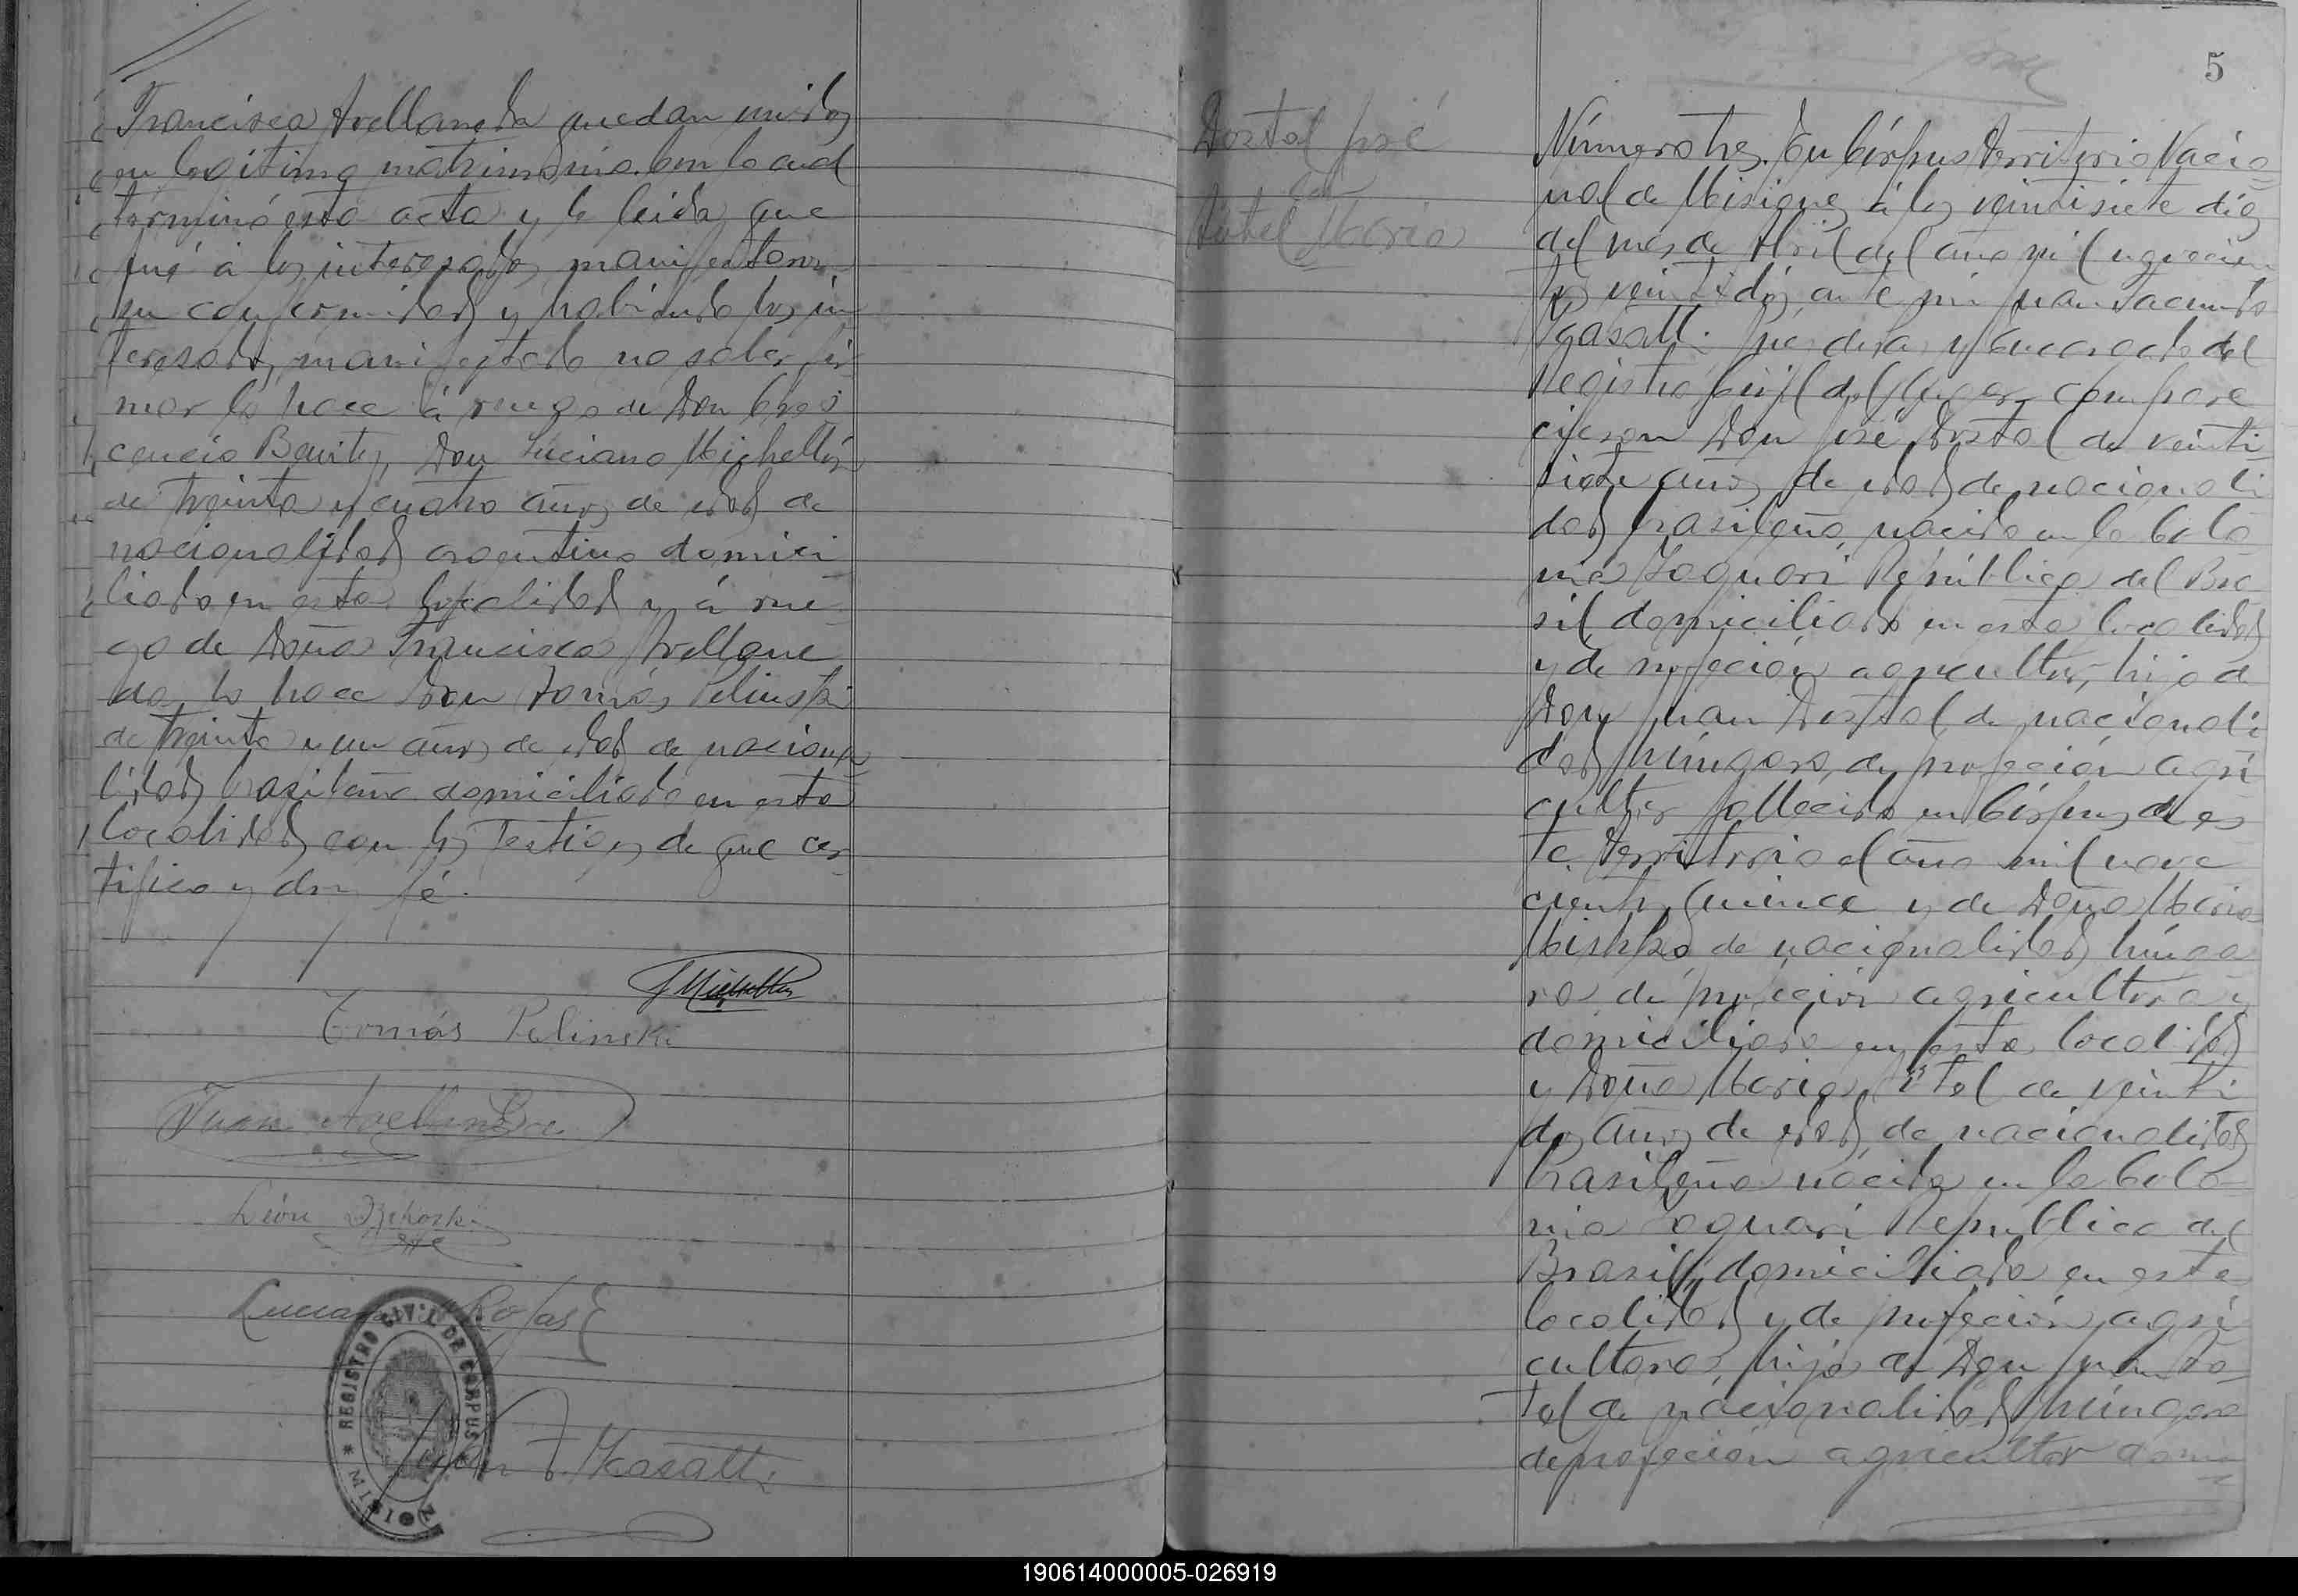 Francisca Avellaneda quedan unidos
en legitimo matrimonio. Con lo cual
terminó esta acta y la leida que
fué á los interesados, manifestaron
su conformidad y habiendo los in
teresados, manifestado no saber fir
mar lo hace á ruego de Don Cres
cencio Benitez, Don Luciano Michellón
de treinta y cuatro años de edad de
nacionalidad argentina domici
liado en esta localidad y á rue
go de Doña Francisca Avellane
da, lo hace Don Tomás Pelinski
de treinta y un años de edad de naciona
lidad brasileña domiciliado en esta
localidad, con los testigos de que cer
tifico y doy fé.
Tomás Pelinski
Juan Avellaneda
León
Luciano Rojas
REGISTRO CIVIL DE CORPUS * MISIONES *
Juan F. Masatti
5
Dostal José
con
María
Número tres. En Córpus Territorio Nacio
nal de Misiones, á los veintisiete dias
del mes de Abril del año mil novecien
tos veintidós, ante mi Juan Facundo
Masatti Juez de Paz y Encargado del
Registro Civil del lugar, compare
cieron Don José Dostal de veinti
siete años de edad de nacionali
dad brasileña, nacido en la Colo
nia Jaguari República del Bra
sil, domiciliado en esta localidad
y de profeción agricultor, hijo de
Don Juan Dostal de nacionali
dad húngara, de profeción agri
cultor fallecido en Córpus de es
te Territorio el año mil nove
cientos quince y de Doña Maria
de nacionalidad húnga
ra de profeción agricultora y
domiciliada en esta localidad
y Doña Maria de veinti
dos años de edad, de nacionalidad
brasileña nacida en la Colo
nia Jaguari República del
Brasil, domiciliada en esta
localidad y de profeción agri
cultora, hija de Don Juan
de nacionalidad húngara
de profeción agricultor domi
190614000005-026919